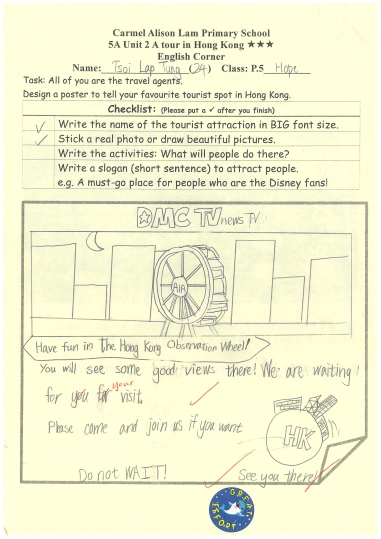 Carmel Alison Lam Primary School
5A Unit 2 A tour in Hong Kong ★★★
English Corner
Name: Tsoi Lap Tung (24) Class: P.5 Hope
Task: All of you are the travel agents.
Design a poster to tell your favourite tourist spot in Hong Kong.
Checklist: (Please put a ✓ after you finish)
✓ Write the name of the tourist attraction in BIG font size.
✓ Stick a real photo or draw beautiful pictures.
Write the activities: What will people do there?
Write a slogan (short sentence) to attract people.
e.g. A must-go place for people who are the Disney fans!
☆DMC TV news TV
AIA
Have fun in The Hong Kong Observation Wheel!
You will see some good views there! We are waiting
for you for your visit.
Please come and join us if you want
HK
Do not WAIT!
See you there!
GREAT EFFORT